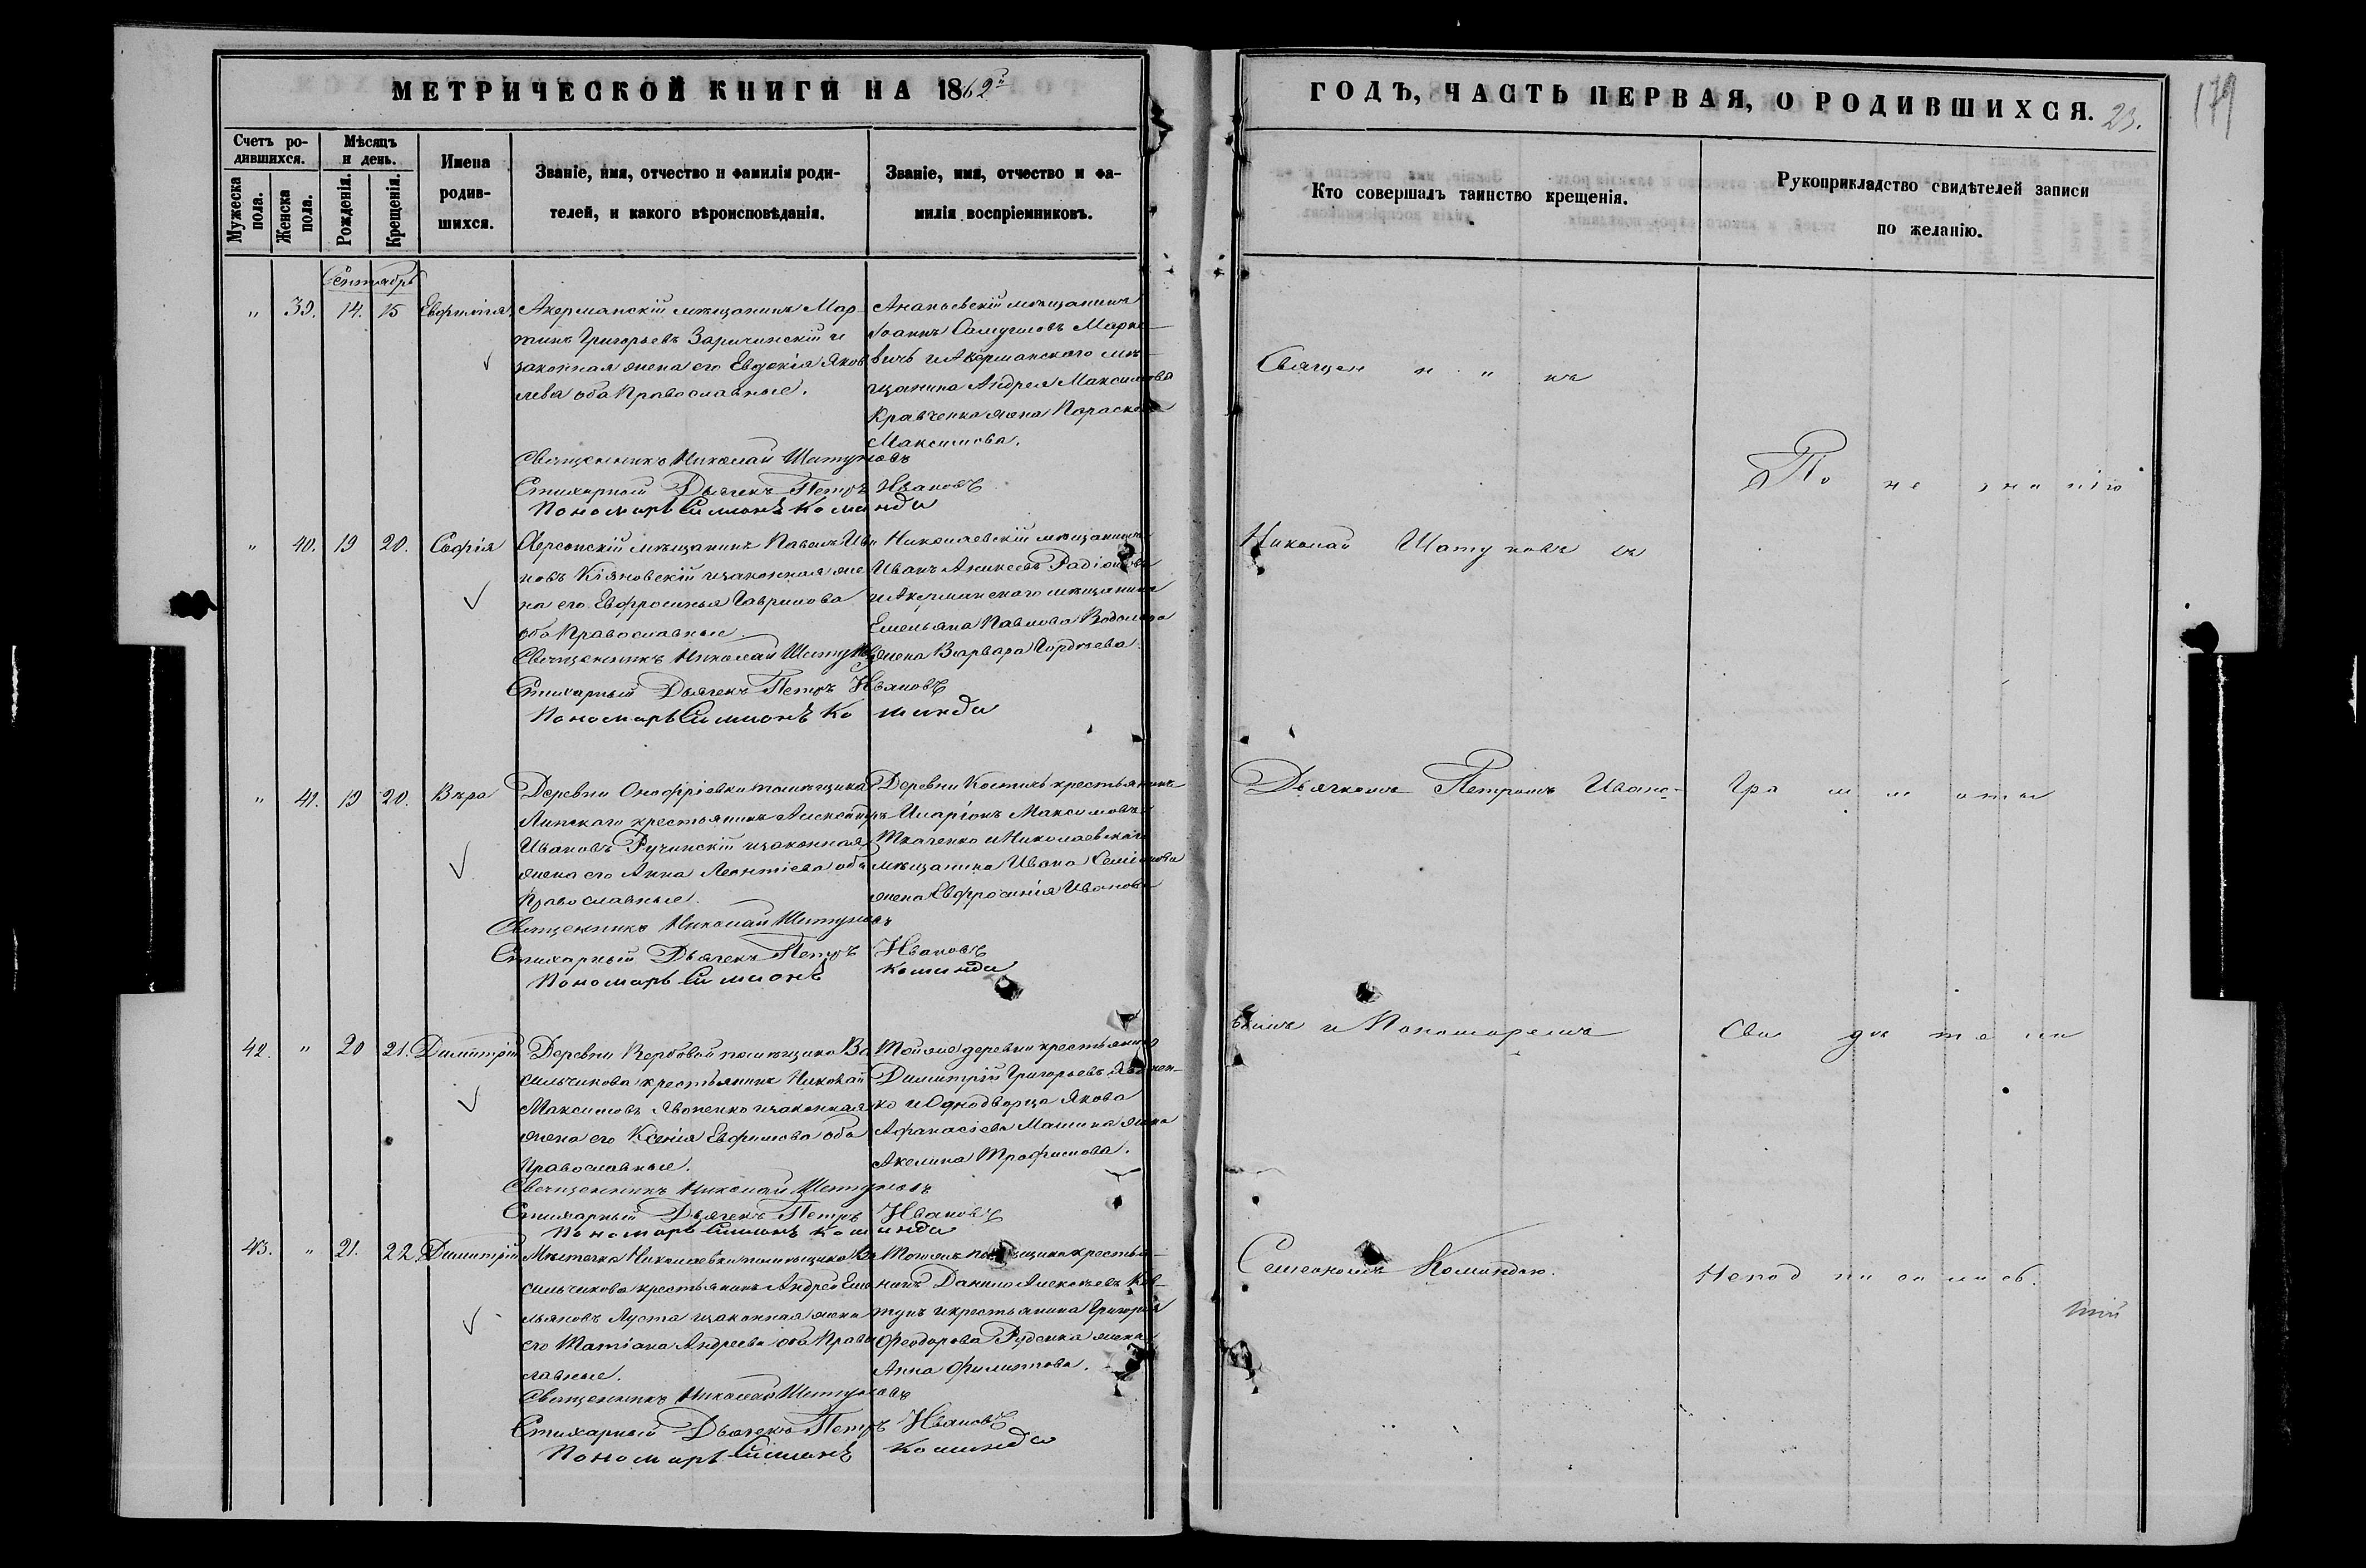 МЕТРИЧЕСКОЙ КНИГИ НА 1862
Счетъ ро-
дившихся.
Мѣсяцъ
и день.
Мужеска
пола.
Женска
пола.
Рожденія.
Крещенія.
Имена
родив-
шихся.
Званіе, имя, отчество и фамилія роди-
телей, и какого вѣроисповѣданія.
Званіе, имя, отчество и фа-
милія воспріемниковъ.
Сентябрь
" 39. 14. 15
Акерманскій мѣщанинъ Мар-
тинъ Григорьевъ Заричинскій и
законная жена его Евдокія Яков
лева оба Православные.
Ананьевскій мѣщанинъ
Іоаннъ Самуиловъ Марке-
вичъ и Акерманскаго мѣ-
щанина Андрея Максимова
Кравченко жена Параскева
Максимова.
Священникъ Николай Шатуновъ
Стихарный Дьячекъ Петръ Ивановъ
Пономарь Симионъ Команда
" 40. 19 20. Софія
Херсонскій мѣщанинъ Павелъ Ива
новъ Кіяновскій и законная же
на его Евфросинья Гаврилова
оба Православные.
Николаевскій мѣщанинъ
Иванъ Аникеевъ Радіоновъ
и Акерманского мѣщанина
Емельяна Павлова
жена Варвара Гордѣева.
Священникъ Николай Шатуновъ
Стихарный Дьячекъ Петръ Ивановъ
Пономарь Симионъ Команда
" 41. 19 20. Вѣра
Деревни Онофріевки помѣщика
Липскаго крестьянинъ Александръ
Ивановъ Ручинскій и законная
жена его Анна Леонтіева оба
Православные.
Деревни крестьянинъ
Иларіонъ Максимовъ
Ткаченко и Николаевскаго
мѣщанина Ивана Семіонова
жена Евфросинія Иванова
Священникъ Николай Шатуновъ
Стихарный Дьячекъ Петръ Ивановъ
Пономарь Симионъ Команда
42. " 20 21. Димитрій
Деревни Вербовой помѣщика Ва
сильчикова крестьянинъ Николай
Максимовъ Явоненко и законная
жена его Ксенія Евфимова оба
Православные.
Той же деревни крестьянинъ
Димитрій Григорьевъ Явонен-
ко и Однодворца Якова
Афанасіева Машина жена
Акелина Трофимова.
Священникъ Николай Шатуновъ
Стихарный Дьячекъ Петръ Ивановъ
Пономарь Симионъ Команда
43. " 21. 22 Димитрій
Мѣстечка Николаевки помѣщика Ва
сильчикова крестьянинъ Андрей Еме
льяновъ Луста и законная жена
его Татіана Андреева оба Право
славные.
Тогожъ помѣщика крестья-
нинъ Данило Алексѣевъ Ков-
тунъ и крестьянина Григорія
Феодорова Руденка жена
Анна Филиппова.
Священникъ Николай Шатуновъ
Стихарный Дьячекъ Петръ Ивановъ
Пономарь Симионъ Команда
ГОДЪ, ЧАСТЬ ПЕРВАЯ, О РОДИВШИХСЯ. 23.
179
Кто совершалъ таинство крещенія.
Рукоприкладство свидѣтелей записи
по желанію.
Священникъ
Николай Шатуновъ съ
Дьячкомъ Петромъ Ивано-
вымъ и Пономаремъ
Симеономъ Командою.
По незнанію
Грамматы
Свидѣтели
Неподписались.